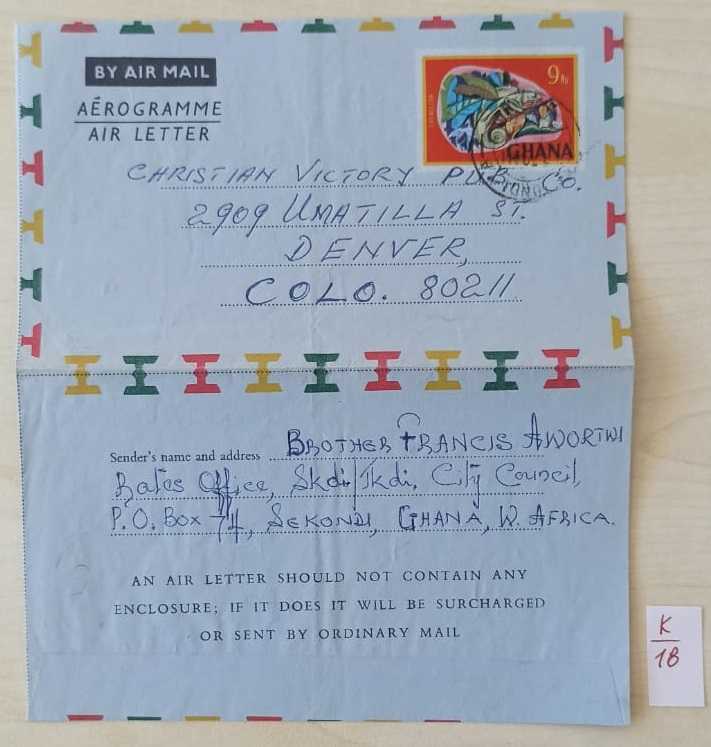 BY AIR MAIL
AÉROGRAMME
AIR LETTER
9 NP
GHANA
CHRISTIAN VICTORY PUB. CO.
2909 UMATILLA ST.
DENVER,
COLO. 80211
Sender's name and address BROTHER FRANCIS AWORTWI
Rates Office, Skdi/Tkdi, City Council,
P.O. Box 74, SEKONDI, GHANA, W. AFRICA.
AN AIR LETTER SHOULD NOT CONTAIN ANY
ENCLOSURE; IF IT DOES IT WILL BE SURCHARGED
OR SENT BY ORDINARY MAIL
K
18